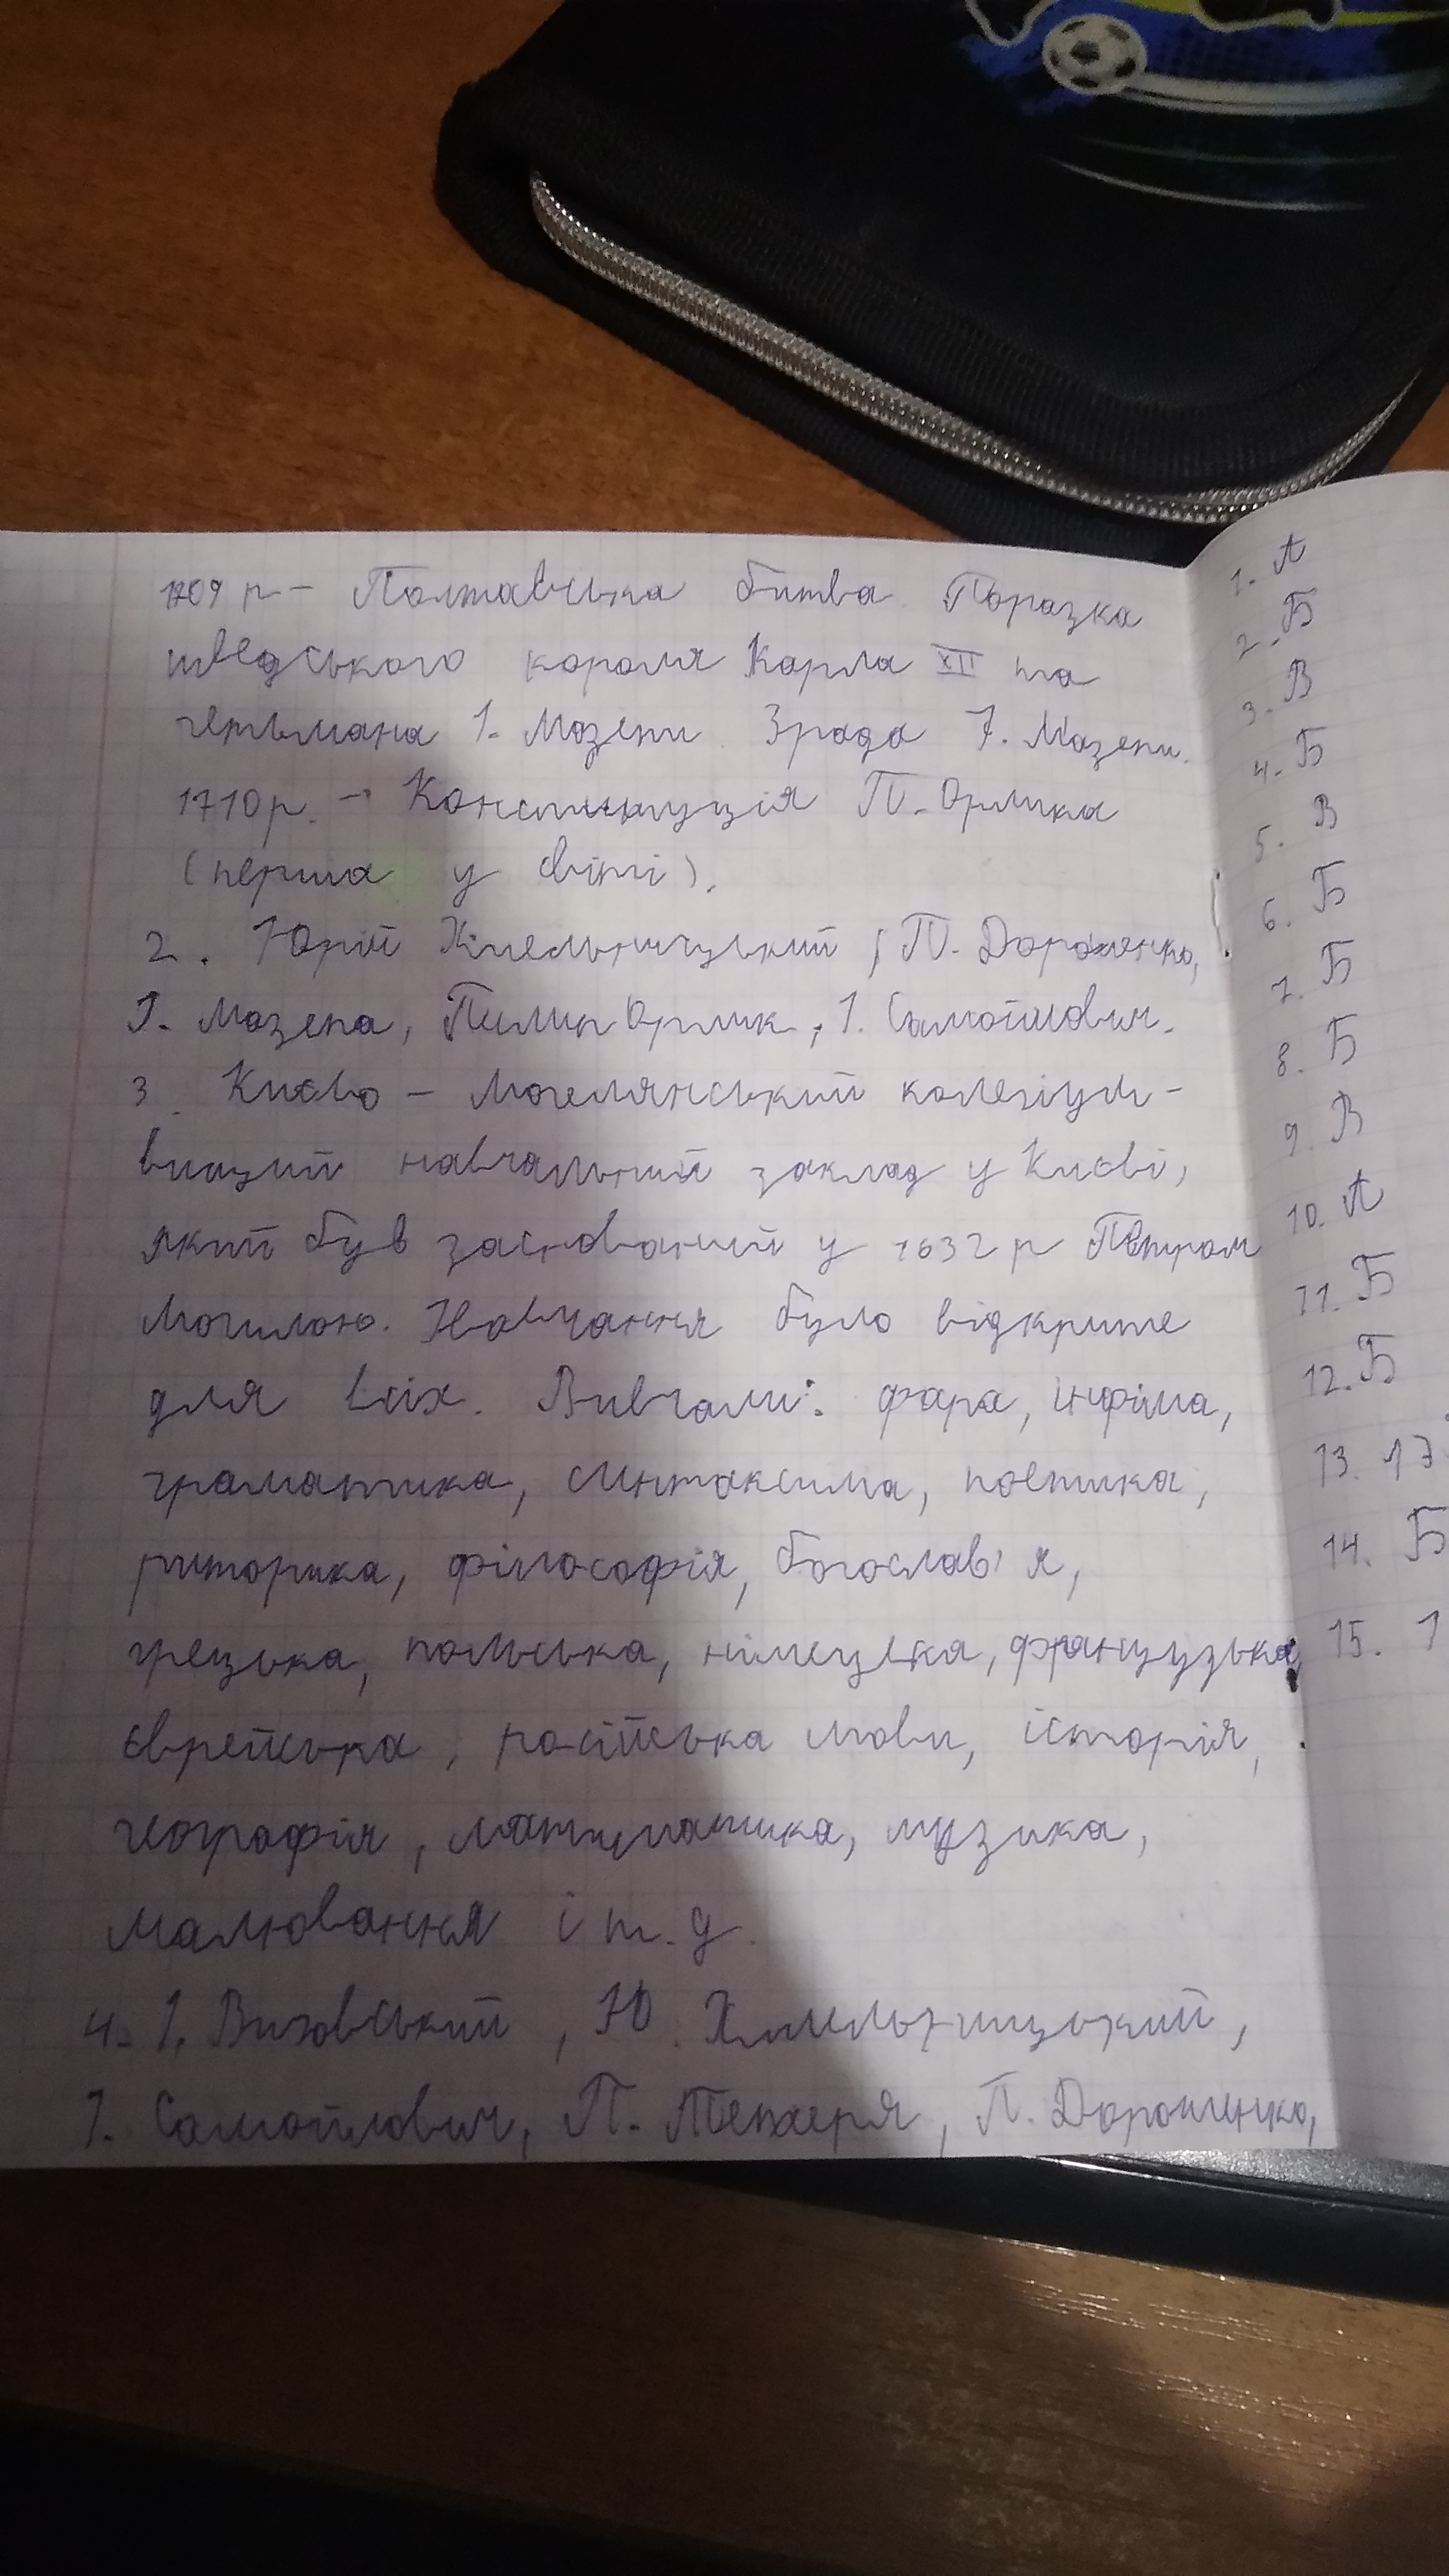 1709 р - Полтавська битва. Поразка
шведського короля Карла XII та
гетьмана І. Мазепи. Зрада І. Мазепи.
1710 р. - Конституція П. Орлика
(перша у світі).
2. Юрій Хмельницький, П. Дорошенко,
І. Мазепа, Пилип Орлик, І. Самойлович.
3. Києво - Могелянський колегіум -
вищий навчальний заклад у Києві,
який був заснований у 1632 р Петром
Могилою. Навчання було відкрите
для всіх. Вивчали: фара, інфіма,
граматика, синтаксима, поетика,
риторика, філософія, богослав'я,
грецька, польська, німецька, французька,
єврейська, російська мови, історія,
географія, математика, музика,
малювання і т. д.
4. І. Виговський, Ю. Хмельницький,
І. Самойлович, П. Тетеря, П. Дорошенко,
1. А
2. Б
3. В
4. Б
5. В
6. Б
7. Б
8. Б
9. В
10. А
11. Б
12. Б
13. 17
14. Б
15. 1